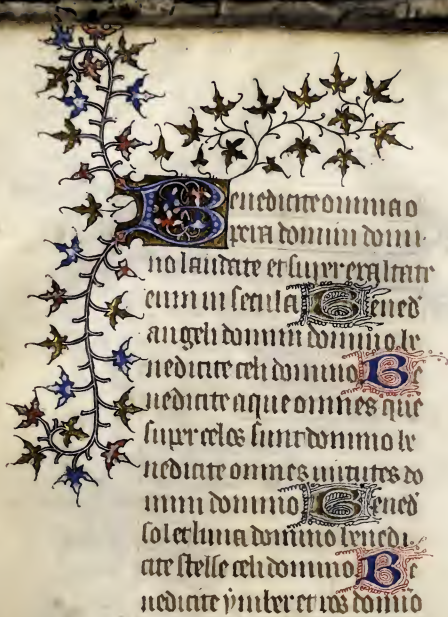 Benedicite omnia o
pera domini domi-
no laudate et superexaltate
eum in secula Bened
angeli domini domino be
nedicite celi domino Be
nedicite aque omnes que
super celos sunt domino be
nedicite omnes uirtutes do
mini domino Bened
sol et luna domino benedi.
cite stelle celi domino Be
nedicite ymber et ros domio